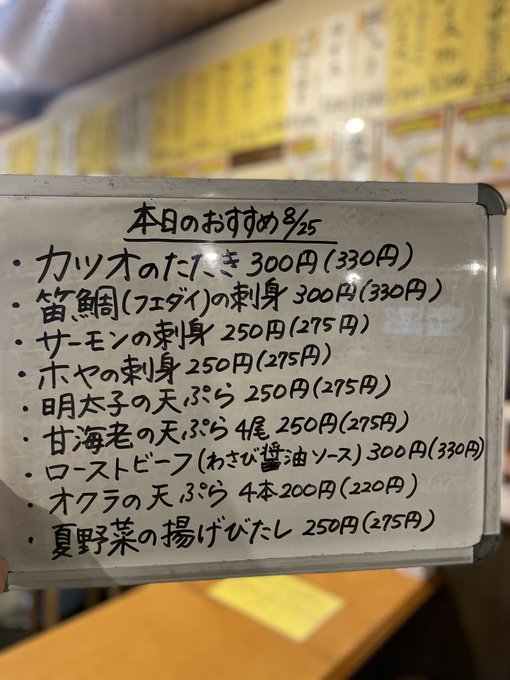 本日のおすすめ8/25
・カツオのたたき 300円(330円)
・笛鯛(フエダイ)の刺身 300円(330円)
・サーモンの刺身 250円(275円)
・ホヤの刺身 250円(275円)
・明太子の天ぷら 250円(275円)
・甘海老の天ぷら4尾 250円(275円)
・ローストビーフ(わさび醤油ソース) 300円(330円)
・オクラの天ぷら 4本200円(220円)
・夏野菜の揚げびたし 250円(275円)